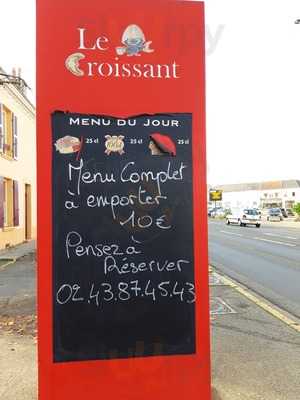 Le
Croissant
MENU DU JOUR
25 cl 25 cl 25 cl
1664
Menu Complet
à emporter
10€
Pensez à
Réserver
02.43.87.45.43